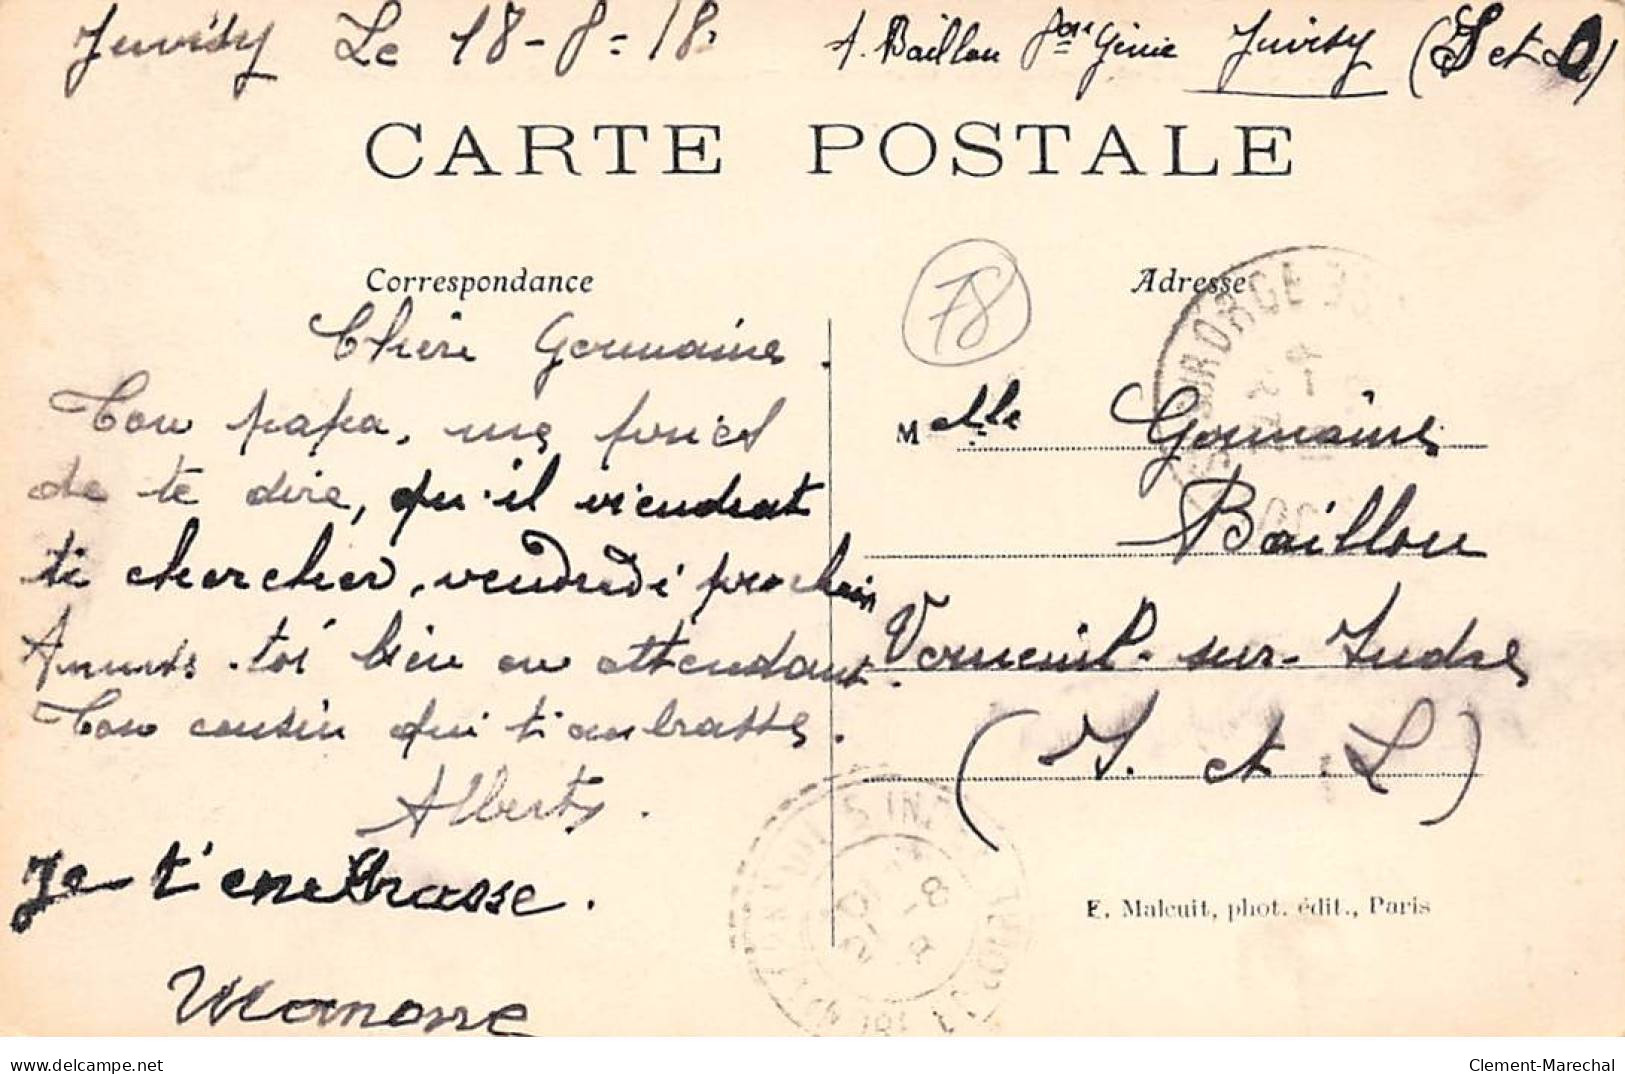 Juvisy Le 18-8-18. A. Baillon Génie Juvisy (S et O)
CARTE POSTALE
Correspondance
Adresse
78
Chère Germaine.
Ton papa, me prie
de te dire, qu'il viendrat
te chercher, vendredi prochain
Amuses-toi bien en attendant.
Ton cousin qui t'embrasse.
Albert.
Je t'embrasse.
Manone
Melle Germaine
Baillon
Verneuil-sur-Indre
(I. et L)
SUR ORGE
E. Malcuit, phot. édit., Paris
www.delcampe.net
Clement-Marechal